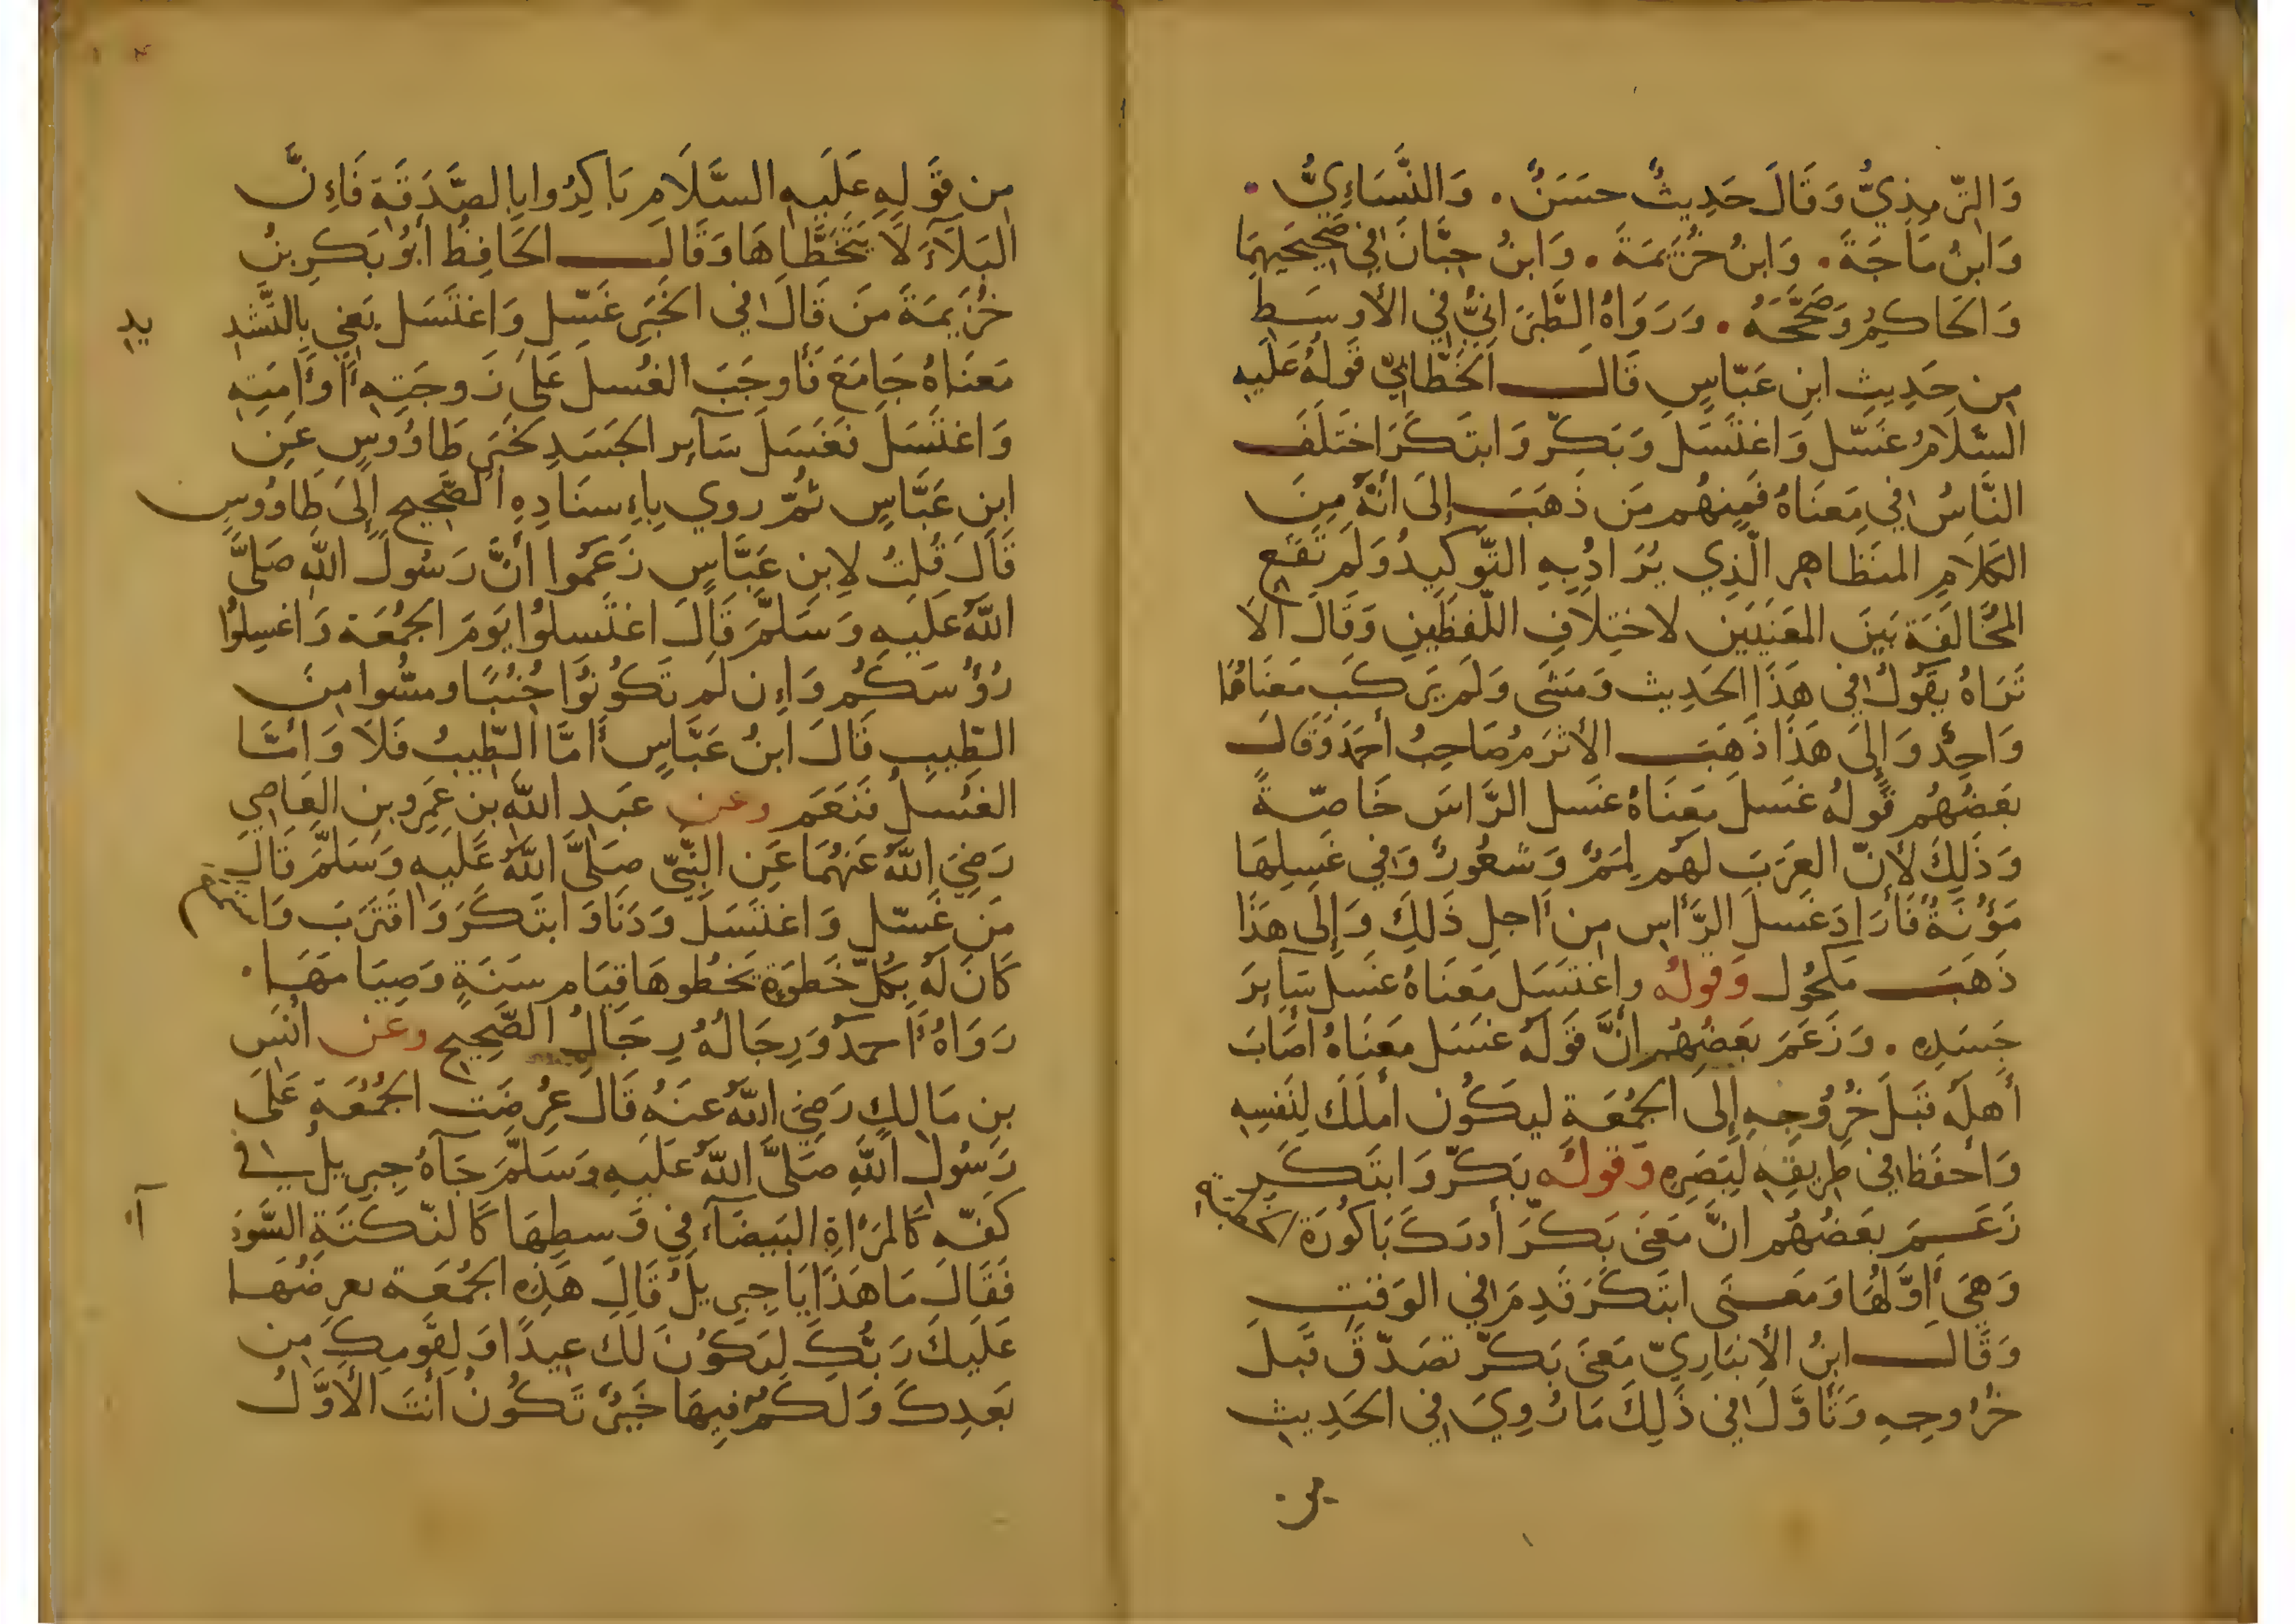 وَالتِّرمِذِيُّ وَقَالَ حَدِيثٌ حَسَنٌ . وَالنَّسَاءِيُّ .
وَابنُ مَاجَةَ . وَابنُ خُزَيمَةَ . وَابنُ حِبَّانَ فِي صَحِيحَيهِمَا
وَالحَاكِمُ وَصَحَّحَهُ . وَرَوَاهُ الطَّبَرَانِيُّ فِي الأَوسَطِ
مِن حَدِيثِ ابنِ عَبَّاسٍ قَالَ الخَطَّابِيّ قَولُهُ عَلَيهِ
السَّلَامُ غَسّل وَاغتَسَلَ وَبَكّر وَابتَكَرَ اختَلَفَ
النَّاسُ فِي مَعنَاهُ فَمِنهُم مَن ذَهَبَ إِلَى أَنَّهُ مِنَ
الكَلَامِ المتَظَاهِرِ الَّذِي يُرَادُ بِهِ التَّوكِيدُ وَلَم تَقَعِ
المُخَالَفَةُ بَينَ المَعنَيَينِ لاختِلَافِ اللَّفظَينِ وَقَالَ أَلَا
تَرَاهُ يَقُولُ فِي هَذَا الحَدِيثِ وَمَشَى وَلَم يَركَب مَعنَاهُمَا
وَاحِدٌ وَإِلَى هَذَا ذَهَبَ الأَثرَمُ صَاحِبُ أَحمَدَ وَقَالَ
بَعضُهُم قَولُهُ غَسَلَ مَعنَاهُ غَسل الرَّاسَ خَاصّةً
وَذَلِكَ لأَنَّ العَرَبَ لَهُم لِمَمٌ وَشعُورٌ وَفِي غَسلِهَا
مَؤُنَةٌ فَأَرَادَ غَسلَ الرَّأسِ مِن أَجلِ ذَلِكَ وَإِلَى هَذَا
ذَهَبَ مَكحُول وَقَولُه وَاغتَسَل مَعنَاهُ غسَل سَايِرَ
جَسَدِهِ . وَزَعَمَ بَعضُهُم أَنَّ قَولَهُ غسَلَ مَعنَاهُ أَصَابَ
أَهلَهُ قَبلَ خُرُوجِهِ إِلَى الجُمُعَةِ ليَكُون أَملَكَ لِنَفسِهِ
وَأَحفَظ فِي طَرِيقِهِ لِبَصَرِهِ وَقَولُه بَكّر وَابتَكَرَ
زَعَمَ بَعضُهُم أَنَّ مَعنَى بَكّرَ أَدرَكَ بَاكُورَةَ الخُطبَةِ
وَهِيَ أَوَّلُهَا وَمَعنَى ابتَكَرَ قَدِمَ فِي الوَقتِ
وَقَالَ ابنُ الأَنبَارِيّ مَعنَى بَكّر تصَدّقَ قَبلَ
خُرُوجِهِ وَتَأَوَّلَ فِي ذَلِكَ مَا رُوِيَ فِي الحَدِيثِ
من
مِن قَولِهِ عَلَيهِ السَّلَامِ بَاكِرُوا بِالصَّدَقَةِ فَإِنَّ
البَلَآءَ لَا يَتَخَطَّاهَا وَقَالَ الحَافِظُ أَبُو بَكرِ بنُ
خُزَيمَةَ مَن قَالَ فِي الخَبَرِ غَسّل وَاغتَسَل يَعنِي بِالتَّشدِ يدِ
مَعنَاهُ جَامَعَ فَأَوجَبَ الغُسلَ عَلَى زَوجَتِهِ أَوأَمَتِهِ
وَاغتَسَلَ فَغَسَلَ سَآيِرِ الجَسَدِ كَخَبَرِ طَاوُوسٍ عَنِ
ابنِ عَبَّاسٍ ثُمَّ روي بِإِسنَادِهِ الصَّحِيحِ إِلَى طَاوُوسٍ
قَالَ قُلتُ لِابنِ عَبَّاسٍ زَعَمُوا أَنَّ رَسُولَ اللَّهِ صَلَّى
اللَّهُ عَلَيهِ وَسَلَّمَ قَالَ اغتَسِلُوا يَومَ الجُمُعَةِ وَاغسِلُوا
رُؤُسَكُم وَإِن لَم تَكُونُوا جُنُبًا ومسُّوا مِنَ
الطِّيبِ قَالَ ابنُ عَبَّاسٍ أَمَّا الطِّيبُ فَلَا وَأَمَّا
الغُسلُ فَنَعَم وعن عَبدِ اللَّهِ بنِ عَمرِو بنِ العَاصِي
رَضِيَ اللَّهُ عَنهُمَا عَنِ النَّبِيّ صَلَّى اللَّهُ عَلَيهِ وَسَلَّمَ قَالَ
مَن غَسّل وَاغتَسَلَ وَدَنَا وَابتَكَرَ وَاقتَرَبَ وَاستَمَع
كَانَ لَهُ بِكُلِّ خَطوَةٍ يَخطُوهَا قِيَام سَنَةٍ وَصِيَامهَا .
رَوَاهُ أَحمَدُ وَرِجَالُهُ رِجَالُ الصَّحِيحِ وعن أَنَسِ
بنِ مَالِكٍ رَضِيَ اللَّهُ عَنهُ قَالَ عُرِضَت الجُمُعَةُ عَلَى
رَسُولِ اللَّهِ صَلَّى اللَّهُ عَلَيهِ وَسَلَّمَ جَآءَهُ جِبرِيلُ فِي
كَفّه كَالمَرْاةِ البَيضَآءَ فِي وَسطِهَا كَالنّكتَةِ السَّود آءِ
فَقَالَ مَا هَذَا يَا جِبرِيلُ قَالَ هَذِهِ الجُمُعَة يعرِضُهَا
عَلَيكَ رَبُّكَ لِتَكُونَ لَكَ عِيدًا وَلِقَومِكَ مِن
بَعدِكَ وَلَكُم فِيهَا خَيرٌ تَكُونُ أَنتَ الأَوَّلُ